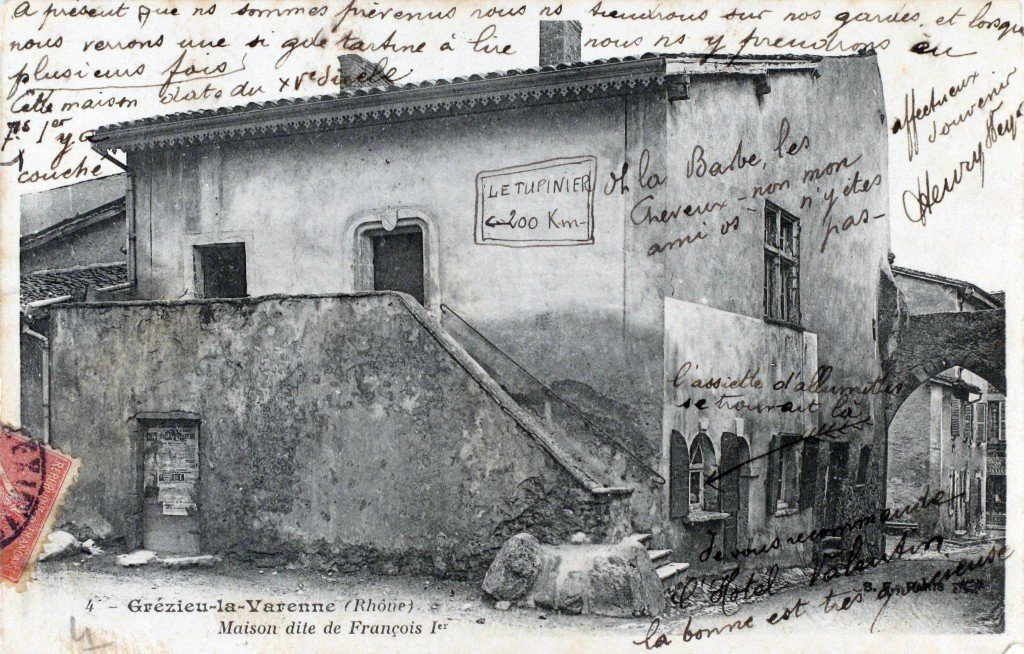 A présent que ns sommes prévenus nous ns tiendrons sur nos gardes, et lorsque
nous verrons une si gde tartine à lire nous ns y prendrons en
plusieurs fois
Cette maison date du XVe siècle
Frs 1er y a
couché
affectueux
souvenir
Henry
LE TUPINIER
200 Km
oh la Barbe, les
Cheveux - non mon
ami vs n'y êtes
pas -
l'assiette d'allumettes
se trouvait là
Je vous recommande
l'Hotel Valentin
la bonne est très
4 - Grézieu-la-Varenne (Rhône)
Maison dite de François Ier